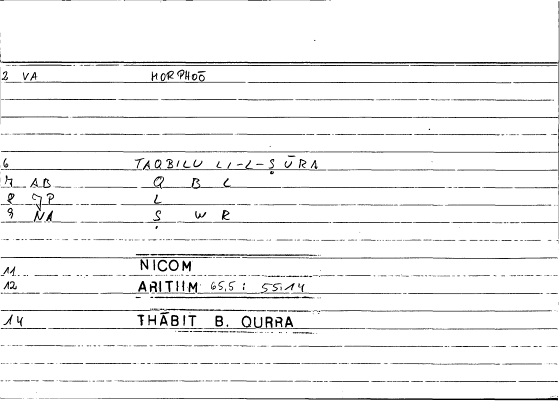 2 VA MORPHOŌ
6 TAQBILU LI-L-ṢŪRA
7 AB Q B L
8 JP L
9 NA Ṣ W R
11 NICOM
12 ARITIIM 65,5 : 55,14
14 THĀBIT B. QURRA